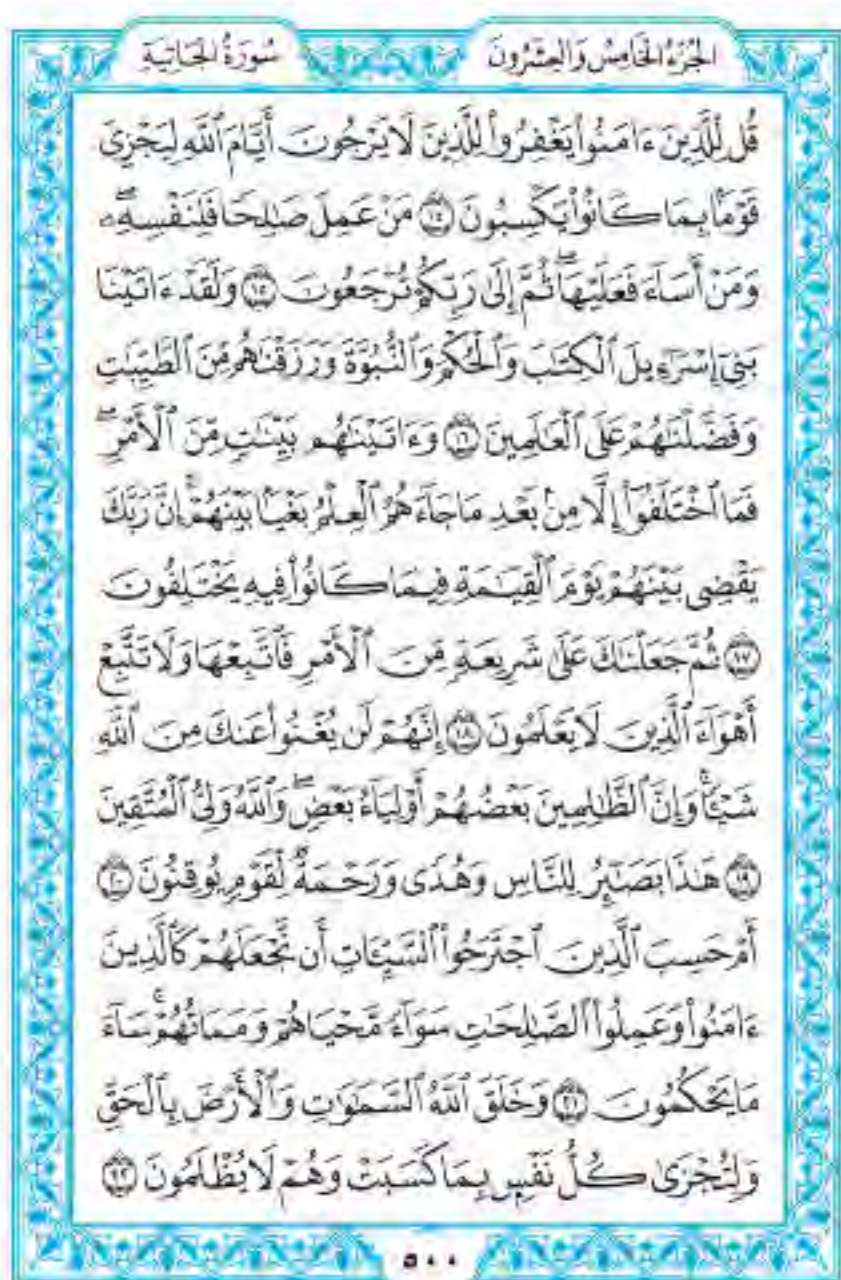 الجُزْءُ الخَامِسُ وَالعِشْرُونَ
سُورَةُ الجَاثِيَةِ
قُل لِّلَّذِينَ ءَامَنُواْ يَغْفِرُواْ لِلَّذِينَ لَا يَرْجُونَ أَيَّامَ ٱللَّهِ لِيَجْزِىَ
قَوْمَۢا بِمَا كَانُواْ يَكْسِبُونَ ١٤ مَنْ عَمِلَ صَٰلِحًا فَلِنَفْسِهِۦۖ
وَمَنْ أَسَآءَ فَعَلَيْهَاۖ ثُمَّ إِلَىٰ رَبِّكُمْ تُرْجَعُونَ ١٥ وَلَقَدْ ءَاتَيْنَا
بَنِىٓ إِسْرَٰٓءِيلَ ٱلْكِتَٰبَ وَٱلْحُكْمَ وَٱلنُّبُوَّةَ وَرَزَقْنَٰهُم مِّنَ ٱلطَّيِّبَٰتِ
وَفَضَّلْنَٰهُمْ عَلَى ٱلْعَٰلَمِينَ ١٦ وَءَاتَيْنَٰهُم بَيِّنَٰتٍ مِّنَ ٱلْأَمْرِۖ
فَمَا ٱخْتَلَفُوٓاْ إِلَّا مِنۢ بَعْدِ مَا جَآءَهُمُ ٱلْعِلْمُ بَغْيَۢا بَيْنَهُمْۚ إِنَّ رَبَّكَ
يَقْضِى بَيْنَهُمْ يَوْمَ ٱلْقِيَٰمَةِ فِيمَا كَانُواْ فِيهِ يَخْتَلِفُونَ
١٧ ثُمَّ جَعَلْنَٰكَ عَلَىٰ شَرِيعَةٍ مِّنَ ٱلْأَمْرِ فَٱتَّبِعْهَا وَلَا تَتَّبِعْ
أَهْوَآءَ ٱلَّذِينَ لَا يَعْلَمُونَ ١٨ إِنَّهُمْ لَن يُغْنُواْ عَنكَ مِنَ ٱللَّهِ
شَيْـًٔاۚ وَإِنَّ ٱلظَّٰلِمِينَ بَعْضُهُمْ أَوْلِيَآءُ بَعْضٍۖ وَٱللَّهُ وَلِىُّ ٱلْمُتَّقِينَ
١٩ هَٰذَا بَصَٰٓئِرُ لِلنَّاسِ وَهُدًى وَرَحْمَةٌ لِّقَوْمٍ يُوقِنُونَ ٢٠
أَمْ حَسِبَ ٱلَّذِينَ ٱجْتَرَحُواْ ٱلسَّيِّـَٔاتِ أَن نَّجْعَلَهُمْ كَٱلَّذِينَ
ءَامَنُواْ وَعَمِلُواْ ٱلصَّٰلِحَٰتِ سَوَآءً مَّحْيَاهُمْ وَمَمَاتُهُمْۚ سَآءَ
مَا يَحْكُمُونَ ٢١ وَخَلَقَ ٱللَّهُ ٱلسَّمَٰوَٰتِ وَٱلْأَرْضَ بِٱلْحَقِّ
وَلِتُجْزَىٰ كُلُّ نَفْسِۭ بِمَا كَسَبَتْ وَهُمْ لَا يُظْلَمُونَ ٢٢
٥٠٠